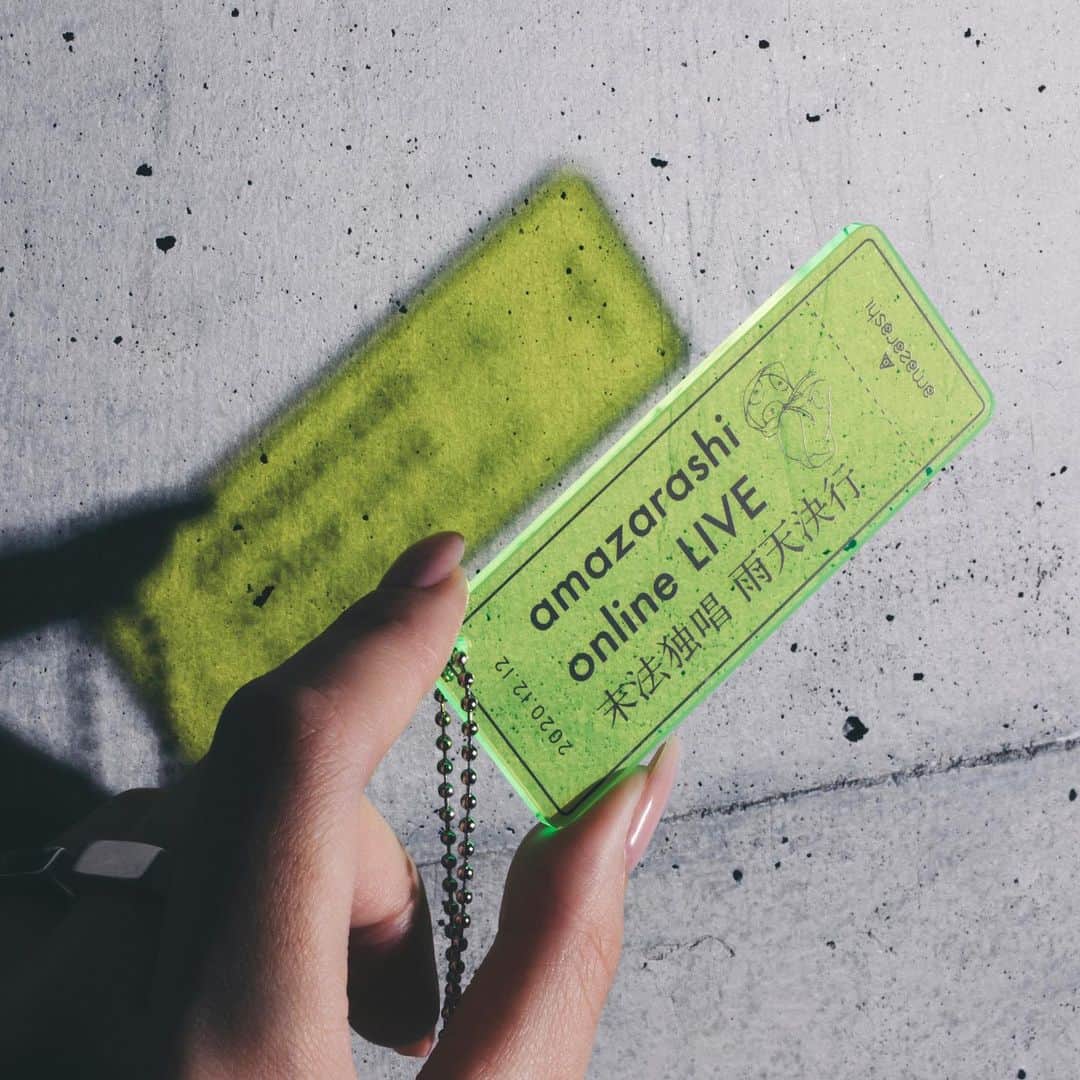 amazarashi
online LIVE
末法独唱 雨天決行
2020.12.12
amazarashi